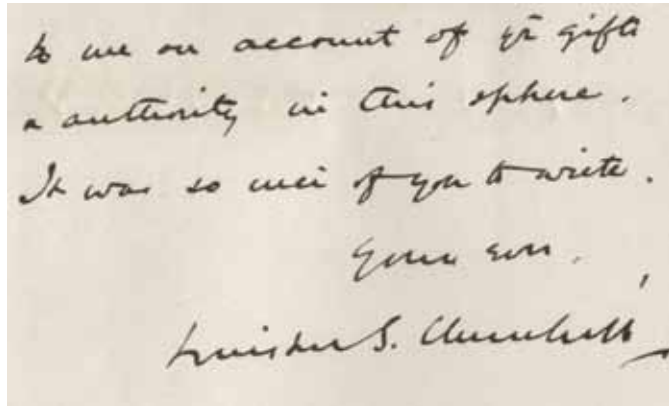 to me on account of yr gifts
& authority in this sphere.
It was so nice of you to write.
Yours ever,
Winston S. Churchill